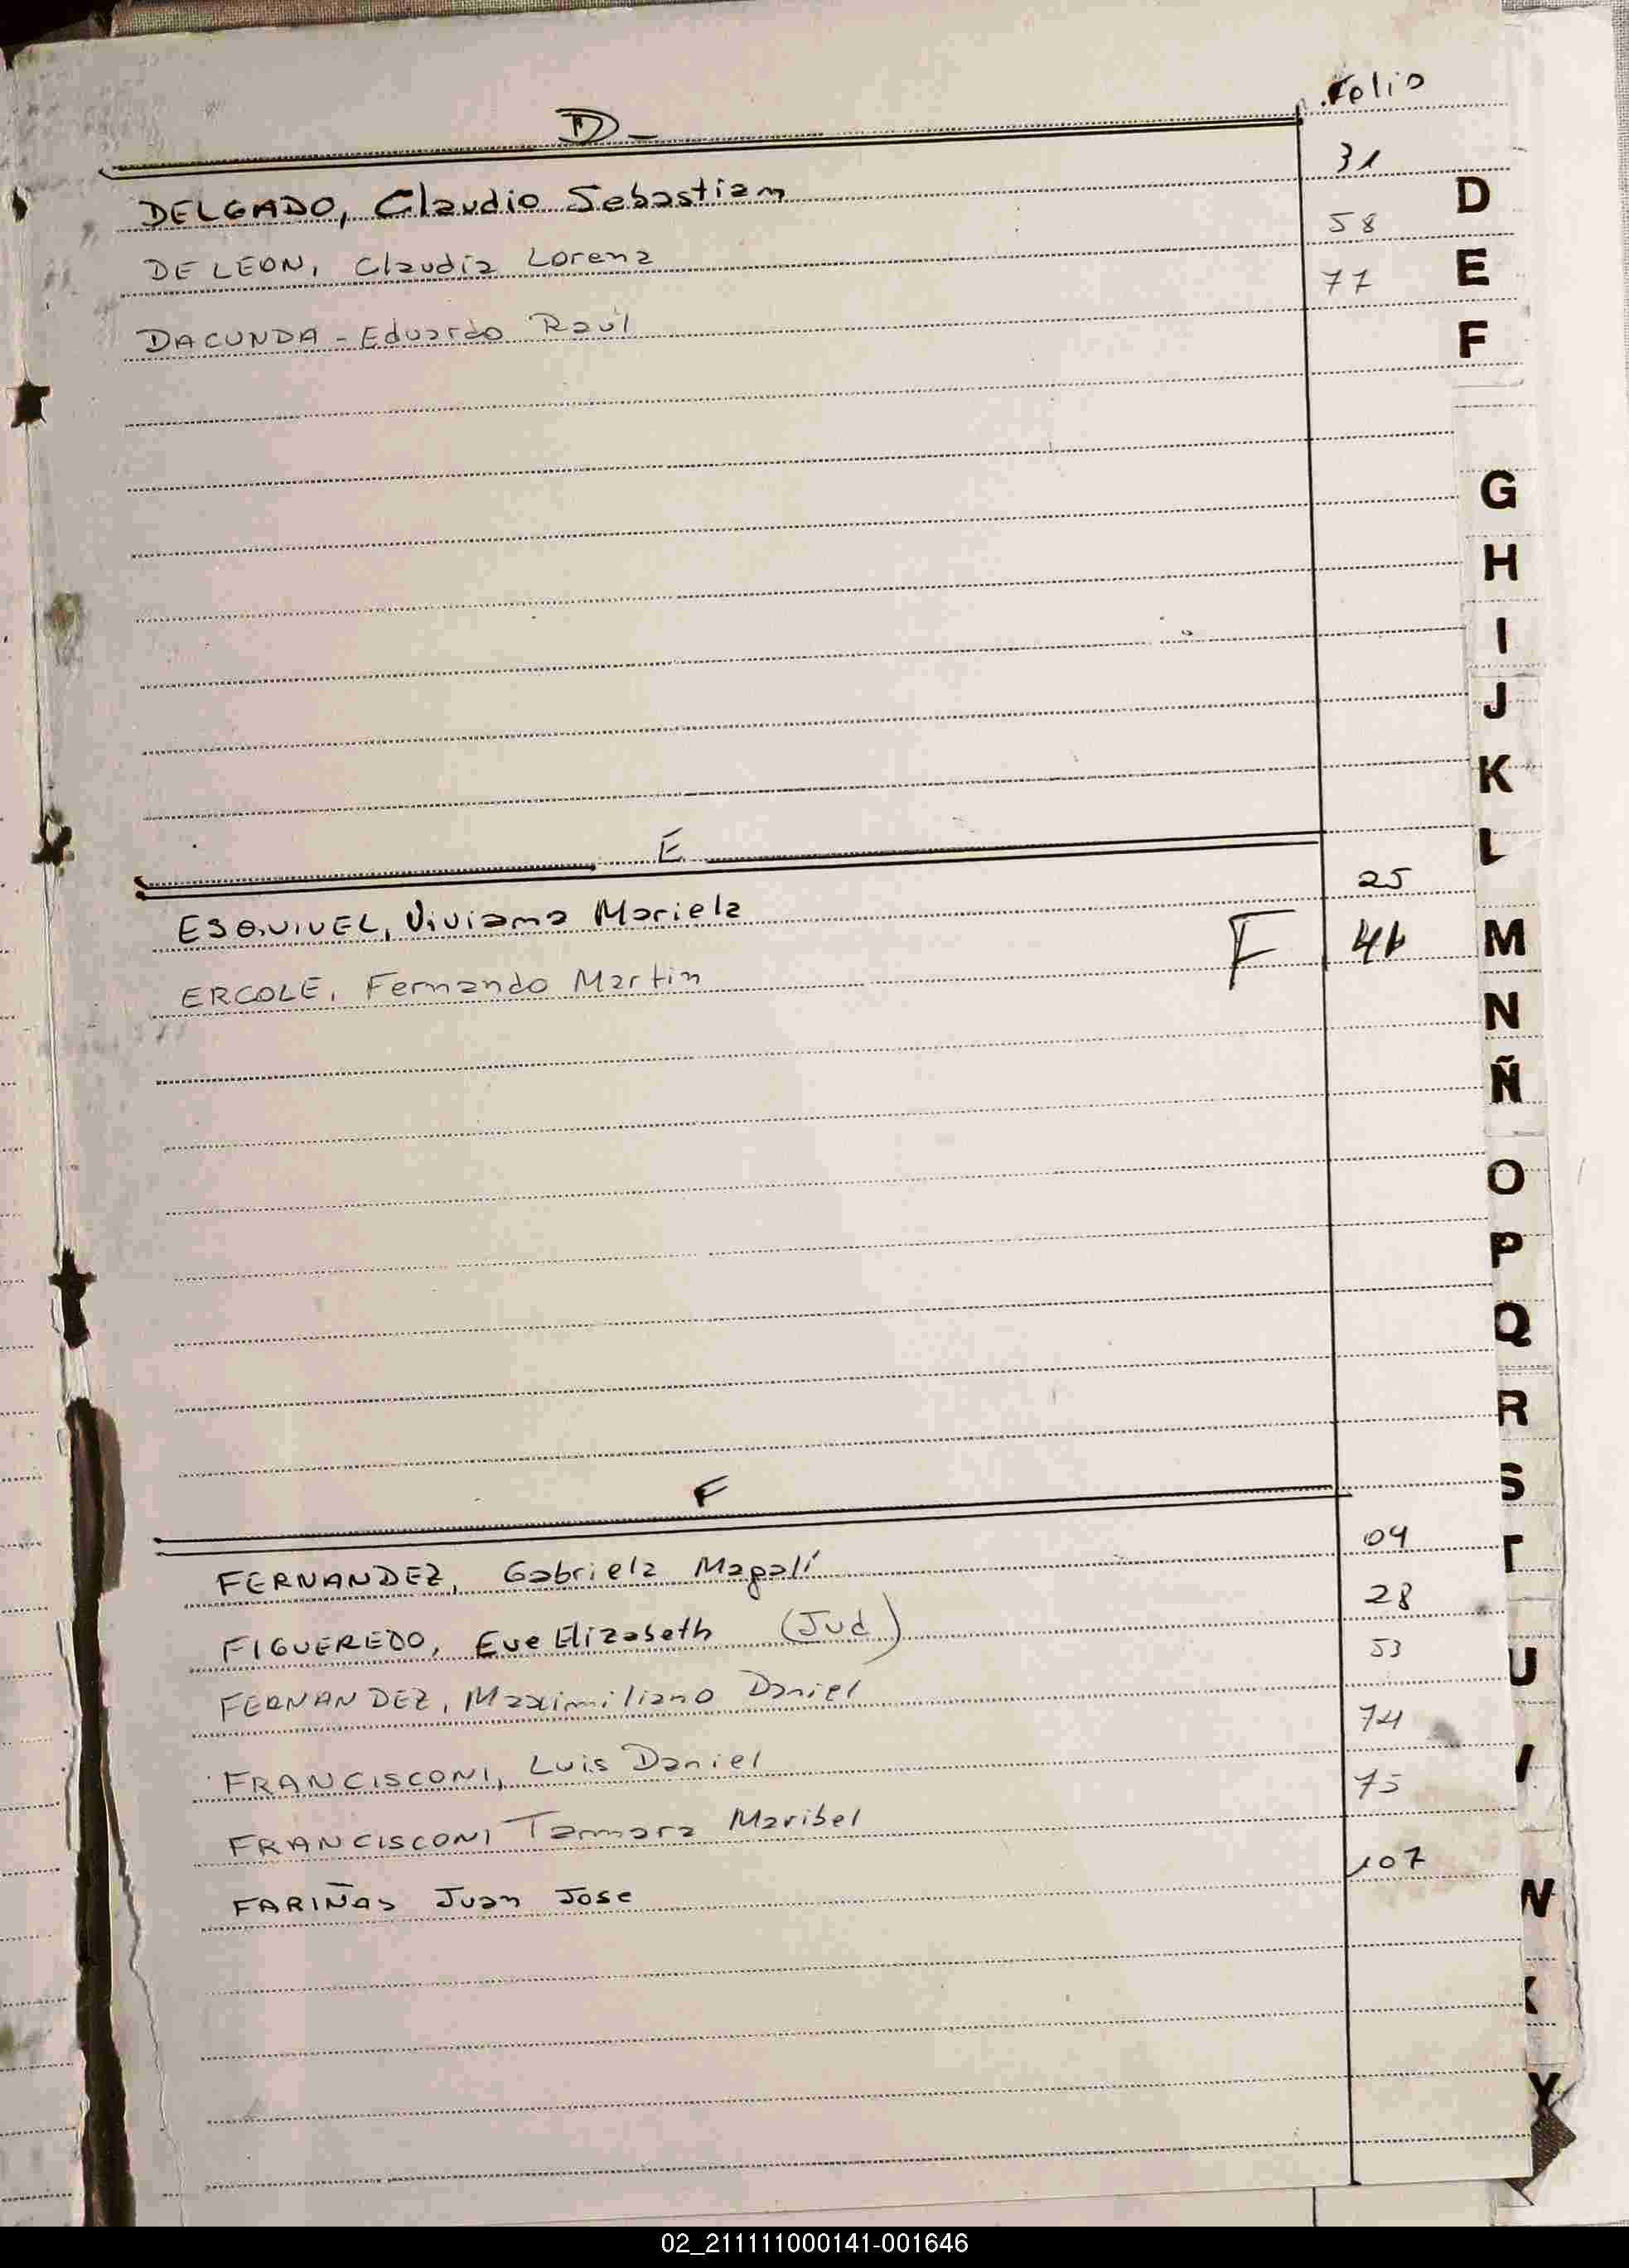 Folio
D-
DELGADO, Claudio Sebastian 31
DE LEON, Claudia Lorena 58
DACUNDA - Eduardo Raúl 77
E
ESQUIVEL, Viviana Mariela 25
ERCOLE, Fernando Martin F
F
FERNANDEZ, Gabriela Magalí 09
FIGUEREDO, Eve Elizabeth (Jud) 28
FERNANDEZ, Maximiliano Daniel 53
FRANCISCONI, Luis Daniel 74
FRANCISCONI Tamara Maribel 75
FARIÑAS Juan Jose 107
D
E
F
G
H
I
J
K
L
M
N
Ñ
O
P
Q
R
S
T
U
Y
02_211111000141-001646